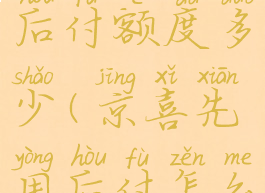 后付额度多
shǎo jīng xǐ xiān
少（京喜先
yòng hòu fù zěn me
用后付怎么